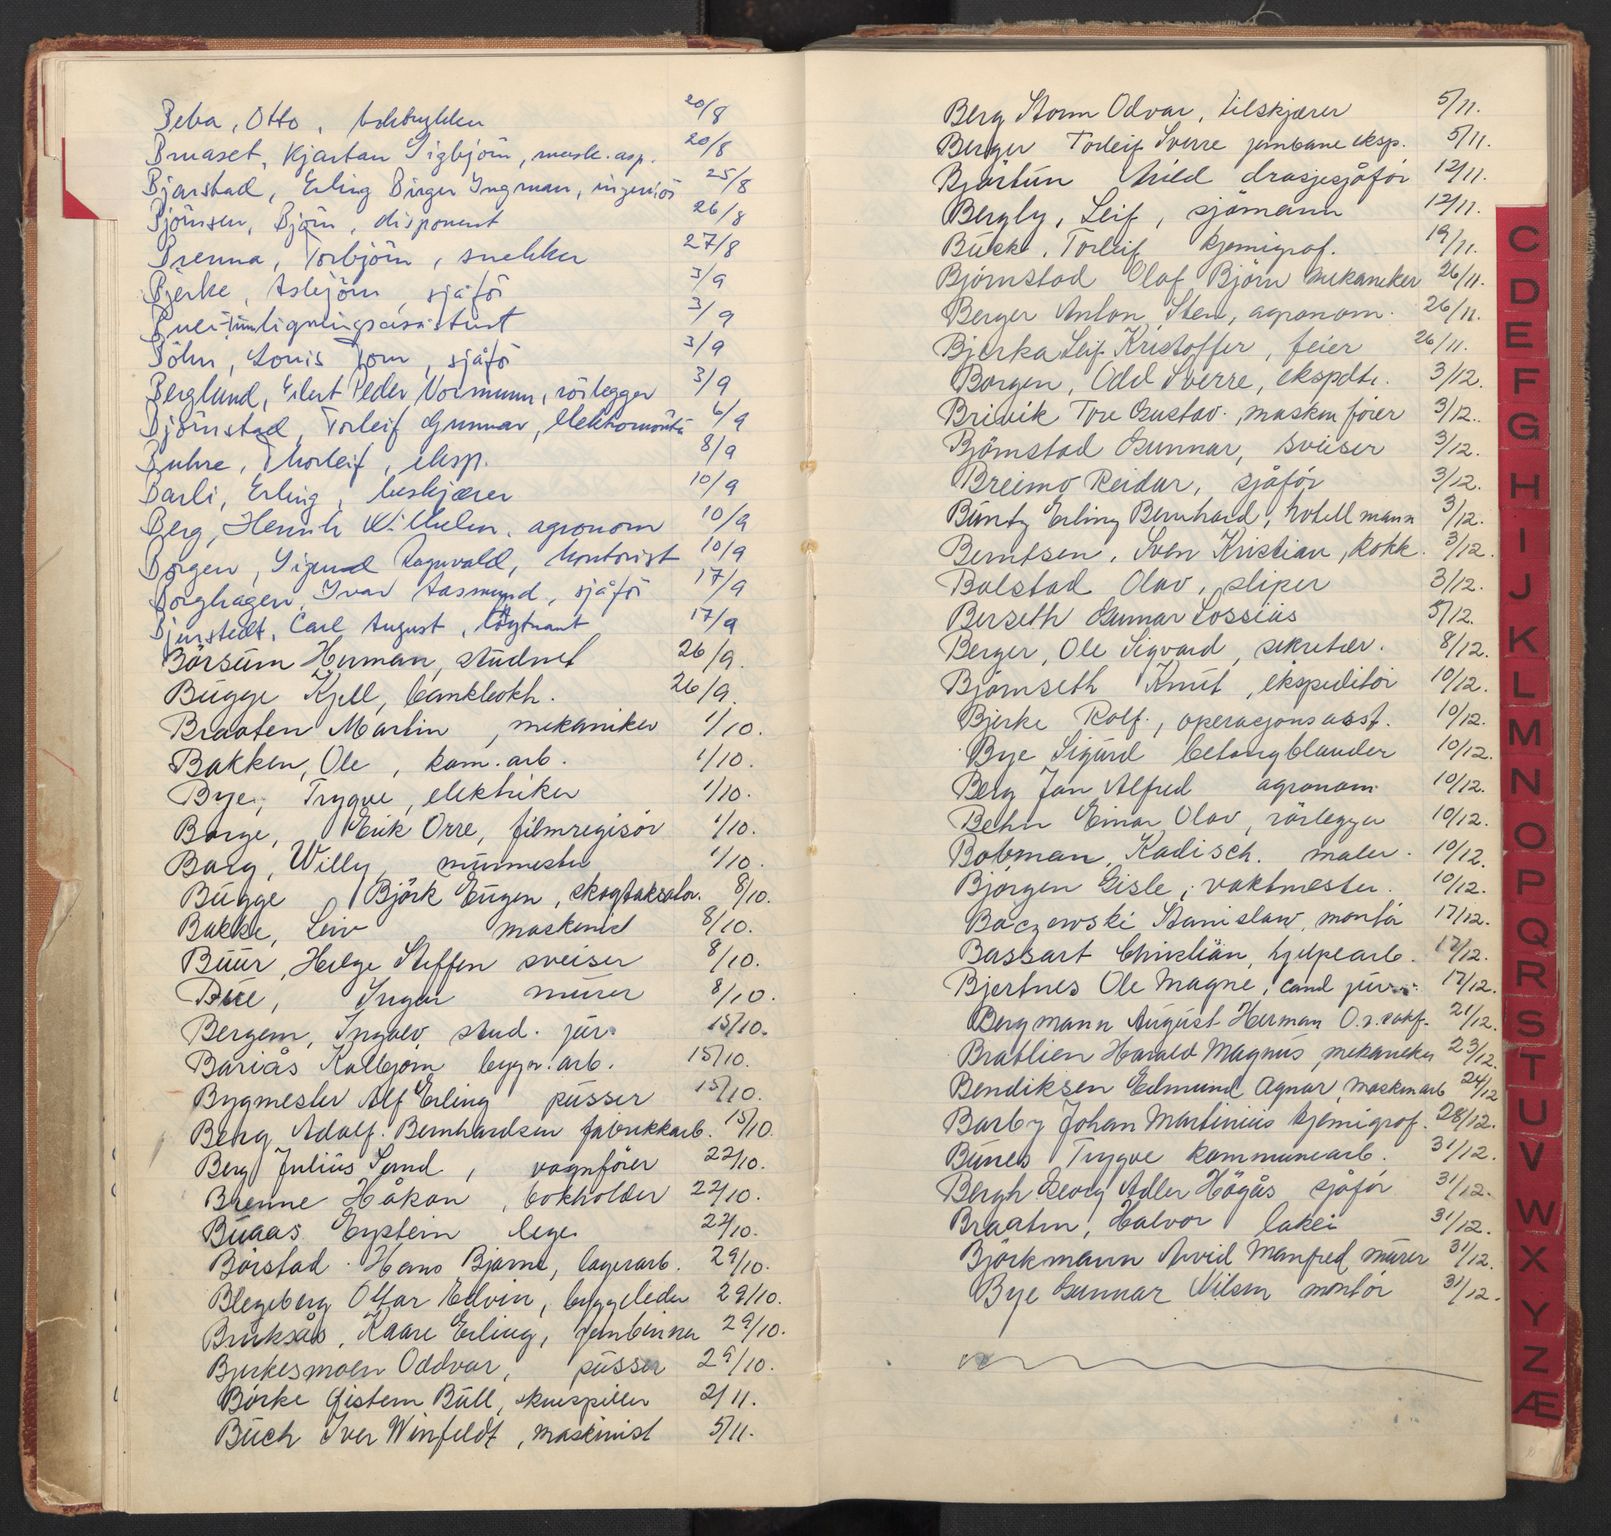 Beba, Otto, boktrykker 20/8
Bruaset, Kjartan Sigbjörn, mask. asp. 20/8
Bjarstad, Erling Birger Ingman, ingeniör 25/8
Björnsen, Björn, disponent 26/8
Brenna, Torbjörn, snekker 27/8
Bjerke, Asbjörn, sjåför 3/9
ligningsassistent 3/9
Böhn, Louis Tom, sjåför 3/9
Berglund, Eilert Peder Normann, rörlegger 3/9
Björnstad, Torleif Gunnar, elektromontör 6/9
Buhre, Thorleif, eksp. 8/9
Barli, Erling, beskjærer 10/9
Berg, Henrik Wilhelm, agronom 10/9
Borgen, Sigurd Ragnvald, kontorist 10/9
Borghagen, Ivar Aasmund, sjåför 17/9
Bjurstedt, Carl August, löytnant 17/9
Börsum Herman, studnet 26/9.
Bugge Kjell, bankbokh. 26/9.
Braaten Martin, mekaniker 1/10.
Bakken, Ole, kom. arb. 1/10.
Bye, Trygve, elektriker 1/10.
Borge, Erik Orre, filmregisör 1/10.
Borg, Willy, murmester 1/10.
Bugge Björk Eugen, skogtaksator. 8/10.
Bakke, Leiv maskinist 8/10.
Buur, Helge Steffen sveiser 8/10.
Bue, Ingar murer 8/10.
Bergem, Ingolv, stud. jur. 15/10.
Bariås Kolbjørn bygn. arb. 15/10.
Bygmester Alf Erling pusser 15/10.
Berg Adolf Bernhardsen fabrikkarb. 15/10.
Berg Julius Sand, vognfører 22/10.
Brenne Håkon, bokholder 22/10.
Buaas Eystein lege 22/10.
Börstad Hans Bjarne, lagerarb. 29/10.
Blegeberg Ottar Edvin, byggeleder 29/10.
Bruksås, Kaare Erling, jernbinner 29/10.
Bjerkesmoen Oddvar, pusser 29/10.
Börke Gistern Bull, skuespiller 2/11.
Buch Iver Winfeldt, maskinist 5/11.
Berg Storm Odvar, tilskjærer 5/11.
Berger Torleif Sverre jernbane eksp. 5/11.
Bjørtun Arild drosjesjåför 12/11.
Bergly, Leif, sjömann 12/11.
Bukk, Torleif kjemigraf. 19/11.
Björnstad Olaf Björn mekaniker 26/11.
Berger Anton Sten, agronom. 26/11.
Bjerka Leif Kristoffer, feier 26/11.
Borgen, Odd Sverre, ekspdtr. 3/12.
Brivik Tore Gustav, maskinfører 3/12.
Björnstad Gunnar, sveiser 3/12.
Breimo Reidar, sjåför 3/12.
Buntz Erling Bernhard, hotellmann 3/12.
Berntsen, Sven Kristian, kokk. 3/12.
Bolstad Olav, sliper 3/12.
Berseth Gunnar Lossius 5/12.
Berger, Ole Sigvard, sekretær. 8/12.
Björnseth Knut, ekspeditör 10/12.
Bjerke Rolf, operasjonsasst. 10/12.
Bye Sigurd betongblander 10/12.
Berg Jan Alfred agronom 10/12.
Behn Einar Olav, rörlegger 10/12.
Bobman, Kadisch. maler. 10/12.
Björgen Gisle, vaktmester. 10/12.
Baczewski Stanislaw, montör 17/12.
Bassart Christian, hjelpearb. 17/12.
Bjertnes Ole Magne, cand jur. 17/12.
Bergmann August Herman O.r.sakf. 21/12.
Bratlien Harald Magnus, mekaniker 23/12.
Bendiksen Edmund Agnar, maskinarb 24/12
Barby Johan Martinius kjemigraf. 28/12.
Bunes Trygve kommunearb. 31/12.
Bergh Georg Adler Högås sjåför 31/12.
Braaten, Halvor lakei 31/12.
Björkmann Arvid Manfred, murer 31/12.
Bye Gunnar Nilsen montör 31/12.
C
D
E
F
G
H
I
J
K
L
M
N
O
P
Q
R
S
T
U
V
W
X
Y
Z
Æ